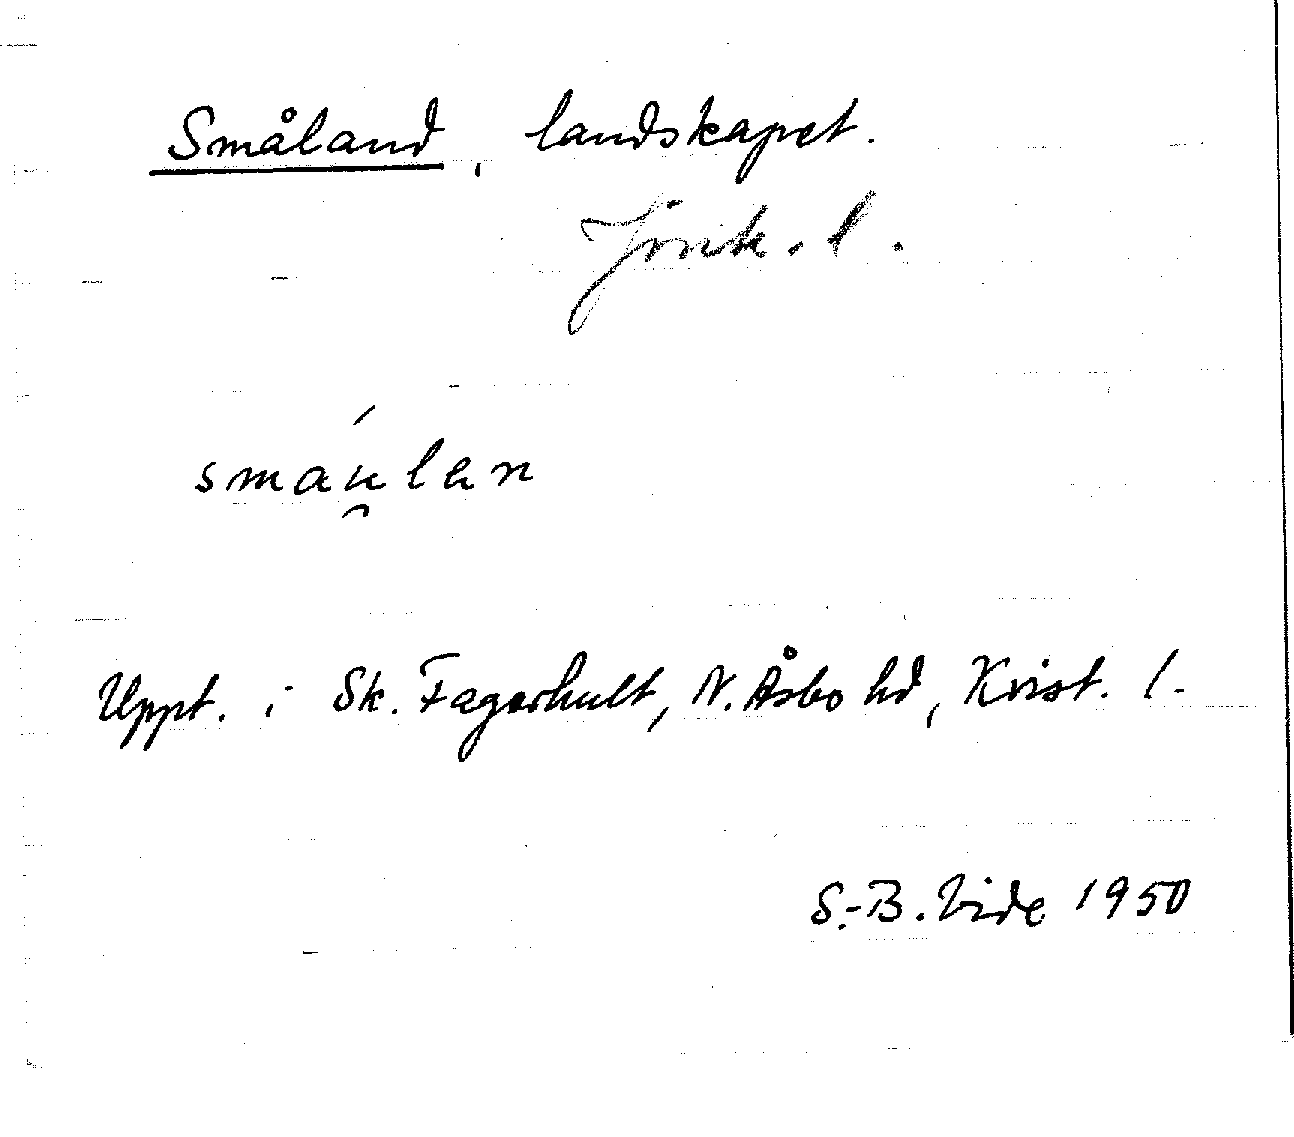 Småland, landskapet.
Jönk. l.
smáu̯lan
Uppt. i Sk. Fagerhult, N. Åsbo hd, Krist. l.
S.-B. Vide 1950